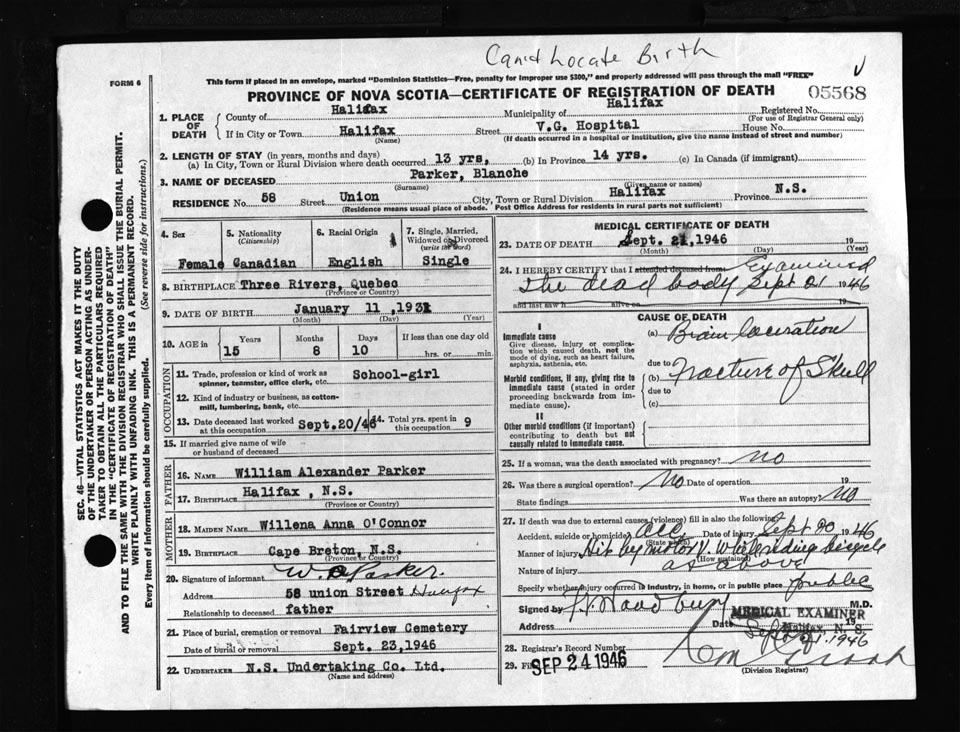 Can't Locate Birth
FORM 6
This form if placed in an envelope, marked "Dominion Statistics—Free, penalty for improper use $300," and properly addressed will pass through the mail "FREE"
PROVINCE OF NOVA SCOTIA—CERTIFICATE OF REGISTRATION OF DEATH
05568
1. PLACE OF DEATH
County of Halifax Municipality of Halifax Registered No.
(For use of Registrar General only)
If in City or Town Halifax Street V.G. Hospital House No.
(Name) (If death occurred in a hospital or institution, give the name instead of street and number)
2. LENGTH OF STAY (in years, months and days)
(a) In City, Town or Rural Division where death occurred 13 yrs, (b) In Province 14 yrs. (c) In Canada (if immigrant)
3. NAME OF DECEASED Parker, Blanche
(Surname) (Given name or names)
RESIDENCE No. 58 Street Union City, Town or Rural Division Halifax Province N.S.
(Residence means usual place of abode. Post Office Address for residents in rural parts not sufficient)
4. Sex
Female
5. Nationality
(Citizenship)
Canadian
6. Racial Origin
English
7. Single, Married, Widowed or Divorced
(write the word)
Single
8. BIRTHPLACE Three Rivers, Quebec
(Province or Country)
9. DATE OF BIRTH January 11, 1931
(Month) (Day) (Year)
10. AGE in
Years Months Days If less than one day old
15 8 10 hrs. or min.
OCCUPATION
11. Trade, profession or kind of work as spinner, teamster, office clerk, etc. School-girl
12. Kind of industry or business, as cotton-mill, lumbering, bank, etc.
13. Date deceased last worked at this occupation Sept.20/46
14. Total yrs. spent in this occupation 9
15. If married give name of wife or husband of deceased
FATHER
16. NAME William Alexander Parker
17. BIRTHPLACE Halifax, N.S.
(Province or Country)
MOTHER
18. MAIDEN NAME Willena Anna O'Connor
19. BIRTHPLACE Cape Breton, N.S.
(Province or Country)
20. Signature of informant W. A. Parker.
Address 58 union Street Halifax
Relationship to deceased father
21. Place of burial, cremation or removal Fairview Cemetery
Date of burial or removal Sept. 23,1946
22. UNDERTAKER N.S. Undertaking Co. Ltd.
(Name and address)
MEDICAL CERTIFICATE OF DEATH
23. DATE OF DEATH Sept. 21,1946 19
(Month) (Day) (Year)
24. I HEREBY CERTIFY that I attended deceased from Examined
the dead body Sept 21 1946
and last saw h alive on 19
CAUSE OF DEATH
I
Immediate cause
Give disease, injury or complication which caused death, not the mode of dying, such as heart failure, asphyxia, asthenia, etc.
(a) Brain laceration
due to
Morbid conditions, if any, giving rise to immediate cause (stated in order proceeding backwards from immediate cause).
(b) Fracture of Skull
due to
(c)
II
Other morbid conditions (if important) contributing to death but not causally related to immediate cause.
25. If a woman, was the death associated with pregnancy? no
26. Was there a surgical operation? No Date of operation 19
State findings Was there an autopsy? No
27. If death was due to external causes (violence) fill in also the following:
Accident, suicide or homicide? acc. Date of injury Sept 20 1946
(State which)
Manner of injury Hit by motor V. while riding bicycle
(How sustained)
Nature of injury as above
Specify whether injury occurred in industry, in home, or in public place public
Signed by M.D.
MEDICAL EXAMINER
Address Date 19
Halifax N. S.
Sept 21. 1946
28. Registrar's Record Number
29. Filed SEP 24 1946
(Division Registrar)
SEC. 46—VITAL STATISTICS ACT MAKES IT THE DUTY
OF THE UNDERTAKER OR PERSON ACTING AS UNDER-
TAKER TO OBTAIN ALL THE PARTICULARS REQUIRED
IN THE "CERTIFICATE OF REGISTRATION OF DEATH"
AND TO FILE THE SAME WITH THE DIVISION REGISTRAR WHO SHALL ISSUE THE BURIAL PERMIT.
WRITE PLAINLY WITH UNFADING INK. THIS IS A PERMANENT RECORD.
Every item of information should be carefully supplied. (See reverse side for instructions.)